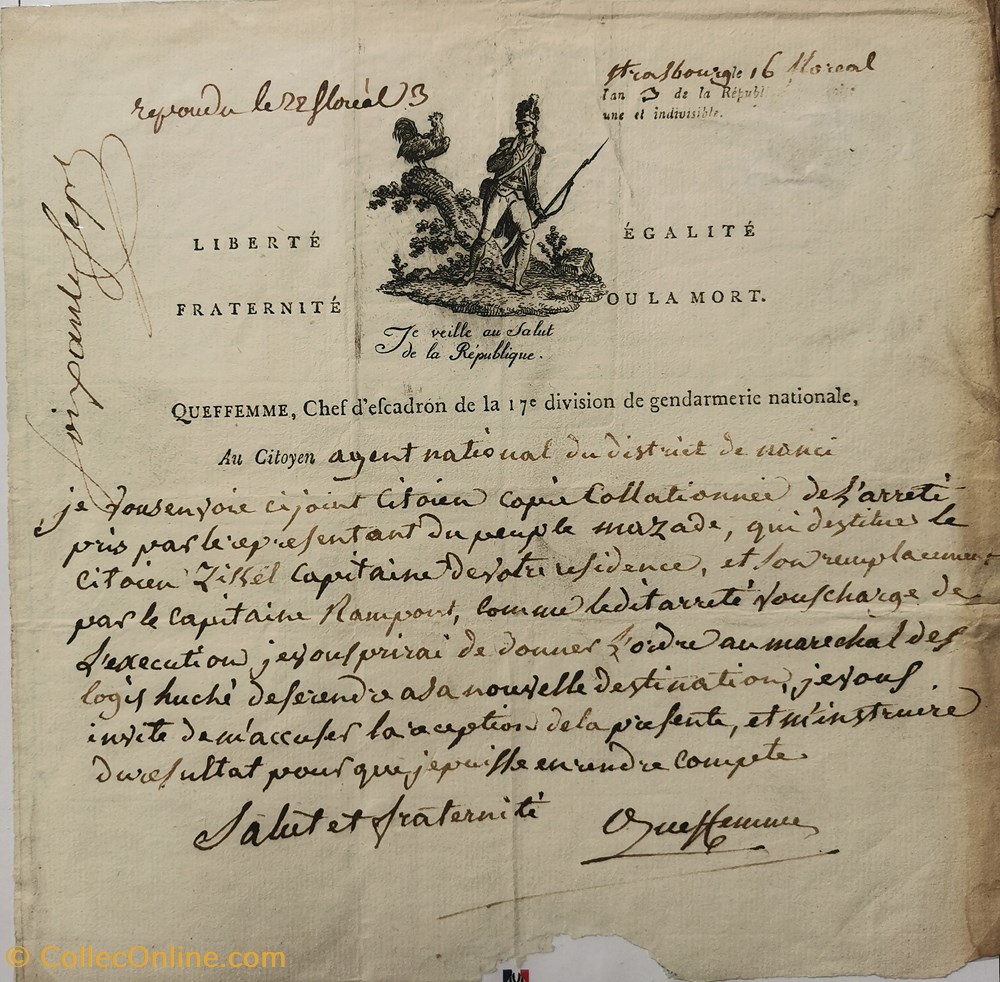 repondu le 28 floréal 3
Strasbourg le 16 floreal
l'an 3 de la Républi
une et indivisible.
LIBERTÉ
ÉGALITÉ
FRATERNITÉ
OU LA MORT.
Je veille au Salut
de la République.
QUEFFEMME, Chef d'escadron de la 17e division de gendarmerie nationale,
Au Citoyen agent national du district de nanci
je vous envoie cijoint Citoien copie Collationnée de L'arreté
pris par le representant du peuple mazade, qui destitue le
Citoien Zikel Capitaine de votre residence, et son remplacement
par le Capitaine Rampont, comme ledit arreté vous charge de
L'execution, je vous prirai de donner L'ordre au marechal des
logis huché de se rendre a sa nouvelle destination, je vous
invite de m'accuser la reception de la presente, et m'instruire
du resultat pour que je puisse en rendre compte
Salut et fraternité
Queffemme
© CollecOnline.com